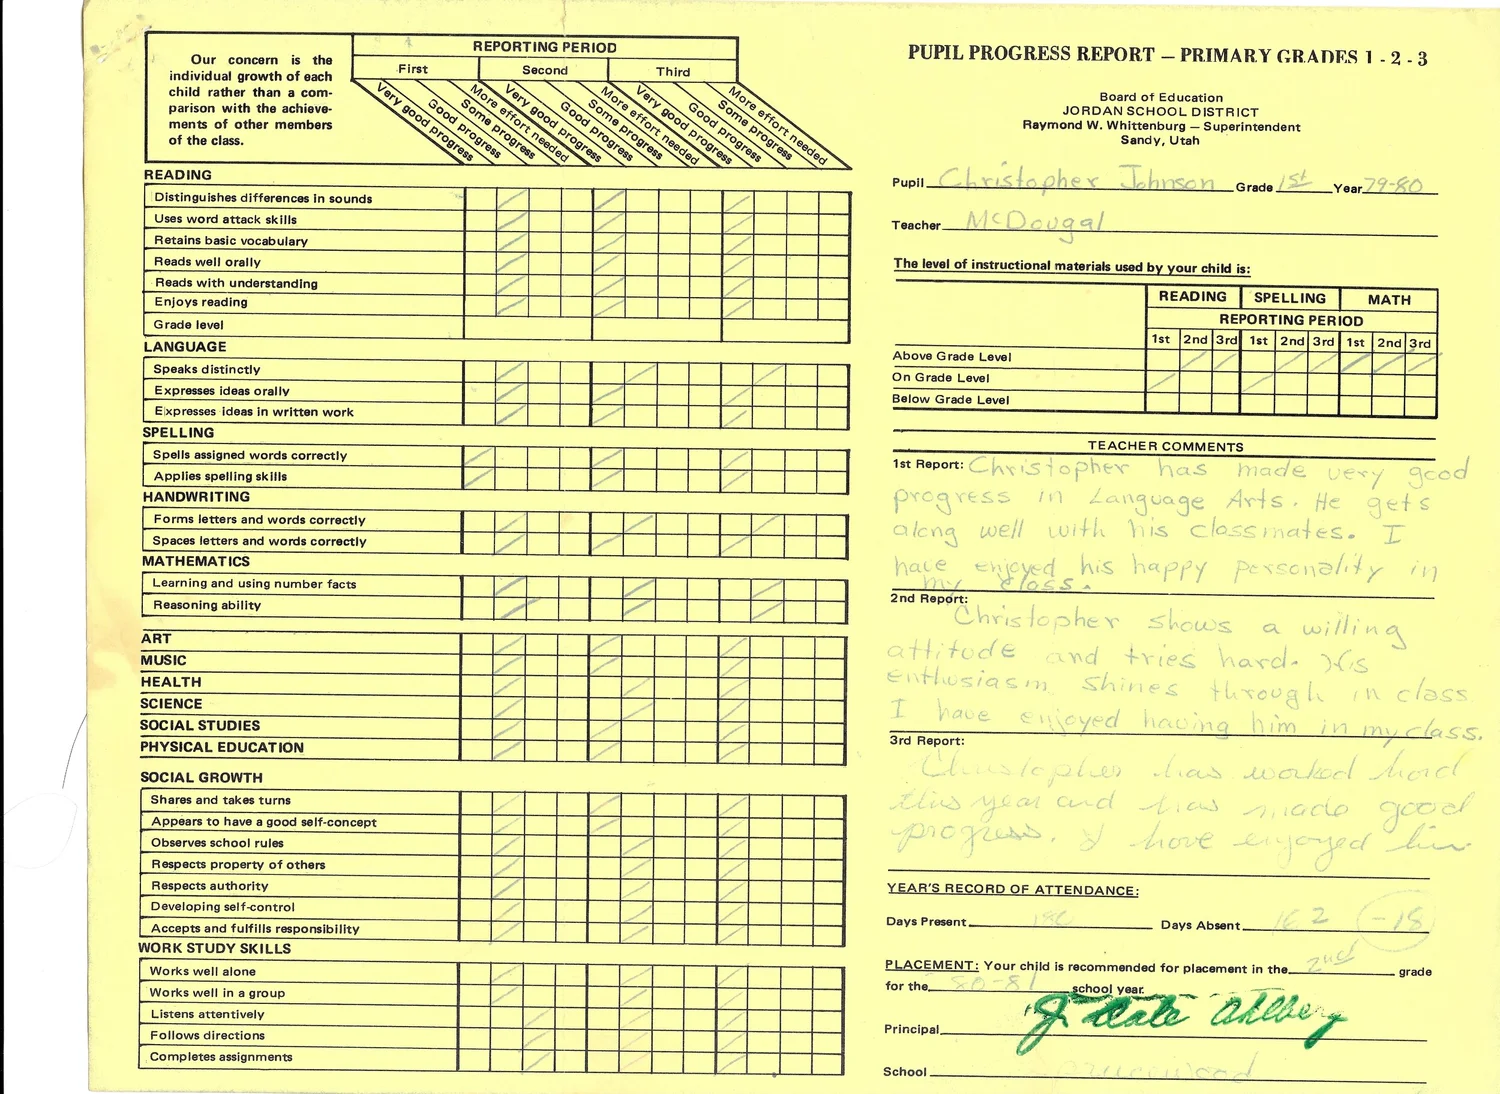 Our concern is the
individual growth of each
child rather than a com-
parison with the achieve-
ments of other members
of the class.
REPORTING PERIOD
First Second Third
Very good progress Good progress Some progress More effort needed Very good progress Good progress Some progress More effort needed Very good progress Good progress Some progress More effort needed
READING
Distinguishes differences in sounds
Uses word attack skills
Retains basic vocabulary
Reads well orally
Reads with understanding
Enjoys reading
Grade level
LANGUAGE
Speaks distinctly
Expresses ideas orally
Expresses ideas in written work
SPELLING
Spells assigned words correctly
Applies spelling skills
HANDWRITING
Forms letters and words correctly
Spaces letters and words correctly
MATHEMATICS
Learning and using number facts
Reasoning ability
ART
MUSIC
HEALTH
SCIENCE
SOCIAL STUDIES
PHYSICAL EDUCATION
SOCIAL GROWTH
Shares and takes turns
Appears to have a good self-concept
Observes school rules
Respects property of others
Respects authority
Developing self-control
Accepts and fulfills responsibility
WORK STUDY SKILLS
Works well alone
Works well in a group
Listens attentively
Follows directions
Completes assignments
PUPIL PROGRESS REPORT – PRIMARY GRADES 1 - 2 - 3
Board of Education
JORDAN SCHOOL DISTRICT
Raymond W. Whittenburg – Superintendent
Sandy, Utah
Pupil Christopher Johnson Grade 1st Year 79-80
Teacher McDougal
The level of instructional materials used by your child is:
READING SPELLING MATH
REPORTING PERIOD
1st 2nd 3rd 1st 2nd 3rd 1st 2nd 3rd
Above Grade Level
On Grade Level
Below Grade Level
TEACHER COMMENTS
1st Report: Christopher has made very good
progress in Language Arts. He gets
along well with his classmates. I
have enjoyed his happy personality in
my class.
2nd Report:
Christopher shows a willing
attitude and tries hard. His
enthusiasm shines through in class
I have enjoyed having him in my class.
3rd Report:
Christopher has worked hard
this year and has made good
progress. I have enjoyed him
YEAR'S RECORD OF ATTENDANCE:
Days Present 180 Days Absent 162 -18
PLACEMENT: Your child is recommended for placement in the 2nd grade
for the 80-81 school year.
Principal J. Dale Ahlberg
School